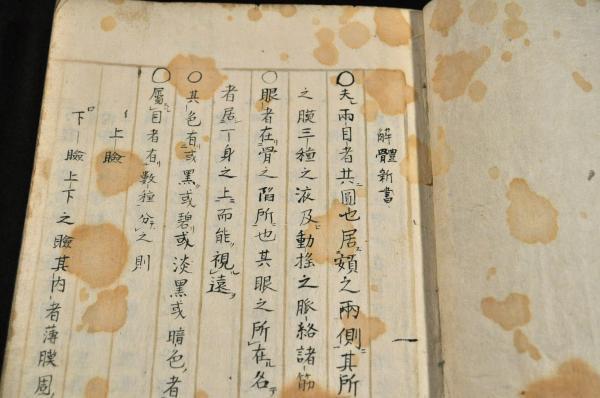 解體新書
〇夫兩目者其圓也居額之兩側其所
之膜三種之液及動搖之脈絡諸筋
〇眼者在骨之陷所也其眼之所在名
者居一身之上而能視遠
〇其色有或黑或碧或淡黑或暗色者
〇屬目者有數種分之則
上瞼
下瞼上下之瞼其内者薄膜固